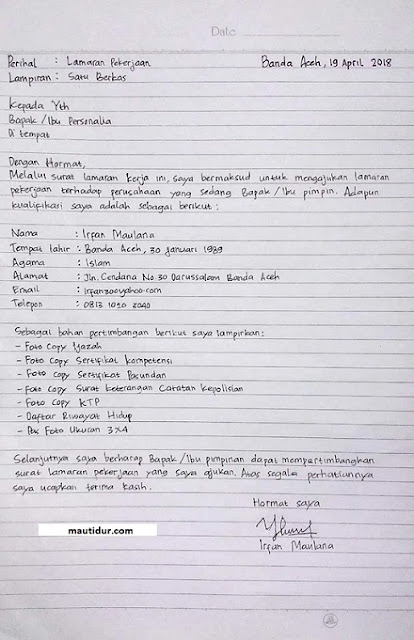 Date
Perihal : Lamaran Pekerjaan Banda Aceh, 19 April 2018
Lampiran : Satu Berkas
Kepada Yth
Bapak/Ibu Personalia
Di tempat
Dengan Hormat,
Melalui surat lamaran kerja ini, saya bermaksud untuk mengajukan lamaran
pekerjaan terhadap perusahaan yang sedang Bapak/Ibu pimpin. Adapun
kualifikasi saya adalah sebagai berikut :
Nama : Irfan Maulana
Tempat lahir : Banda Aceh, 30 Januari 1989
Agama : Islam
Alamat : Jln. Cendana No 30 Darussalam Banda Aceh
Email : irfan200yahoo.com
Telepon : 0813 1020 2040
Sebagai bahan pertimbangan berikut saya lampirkan :
- Foto Copy Ijazah
- Foto Copy Sertifikat Kompetensi
- Foto Copy Sertifikat
- Foto Copy Surat Keterangan Catatan Kepolisian
- Foto Copy KTP
- Daftar Riwayat Hidup
- Foto Ukuran 3x4
Selanjutnya saya berharap Bapak/Ibu pimpinan dapat mempertimbangkan
surat lamaran pekerjaan yang saya ajukan. Atas segala perhatiannya
saya ucapkan terima kasih.
Hormat saya
mautidur.com
Irfan Maulana